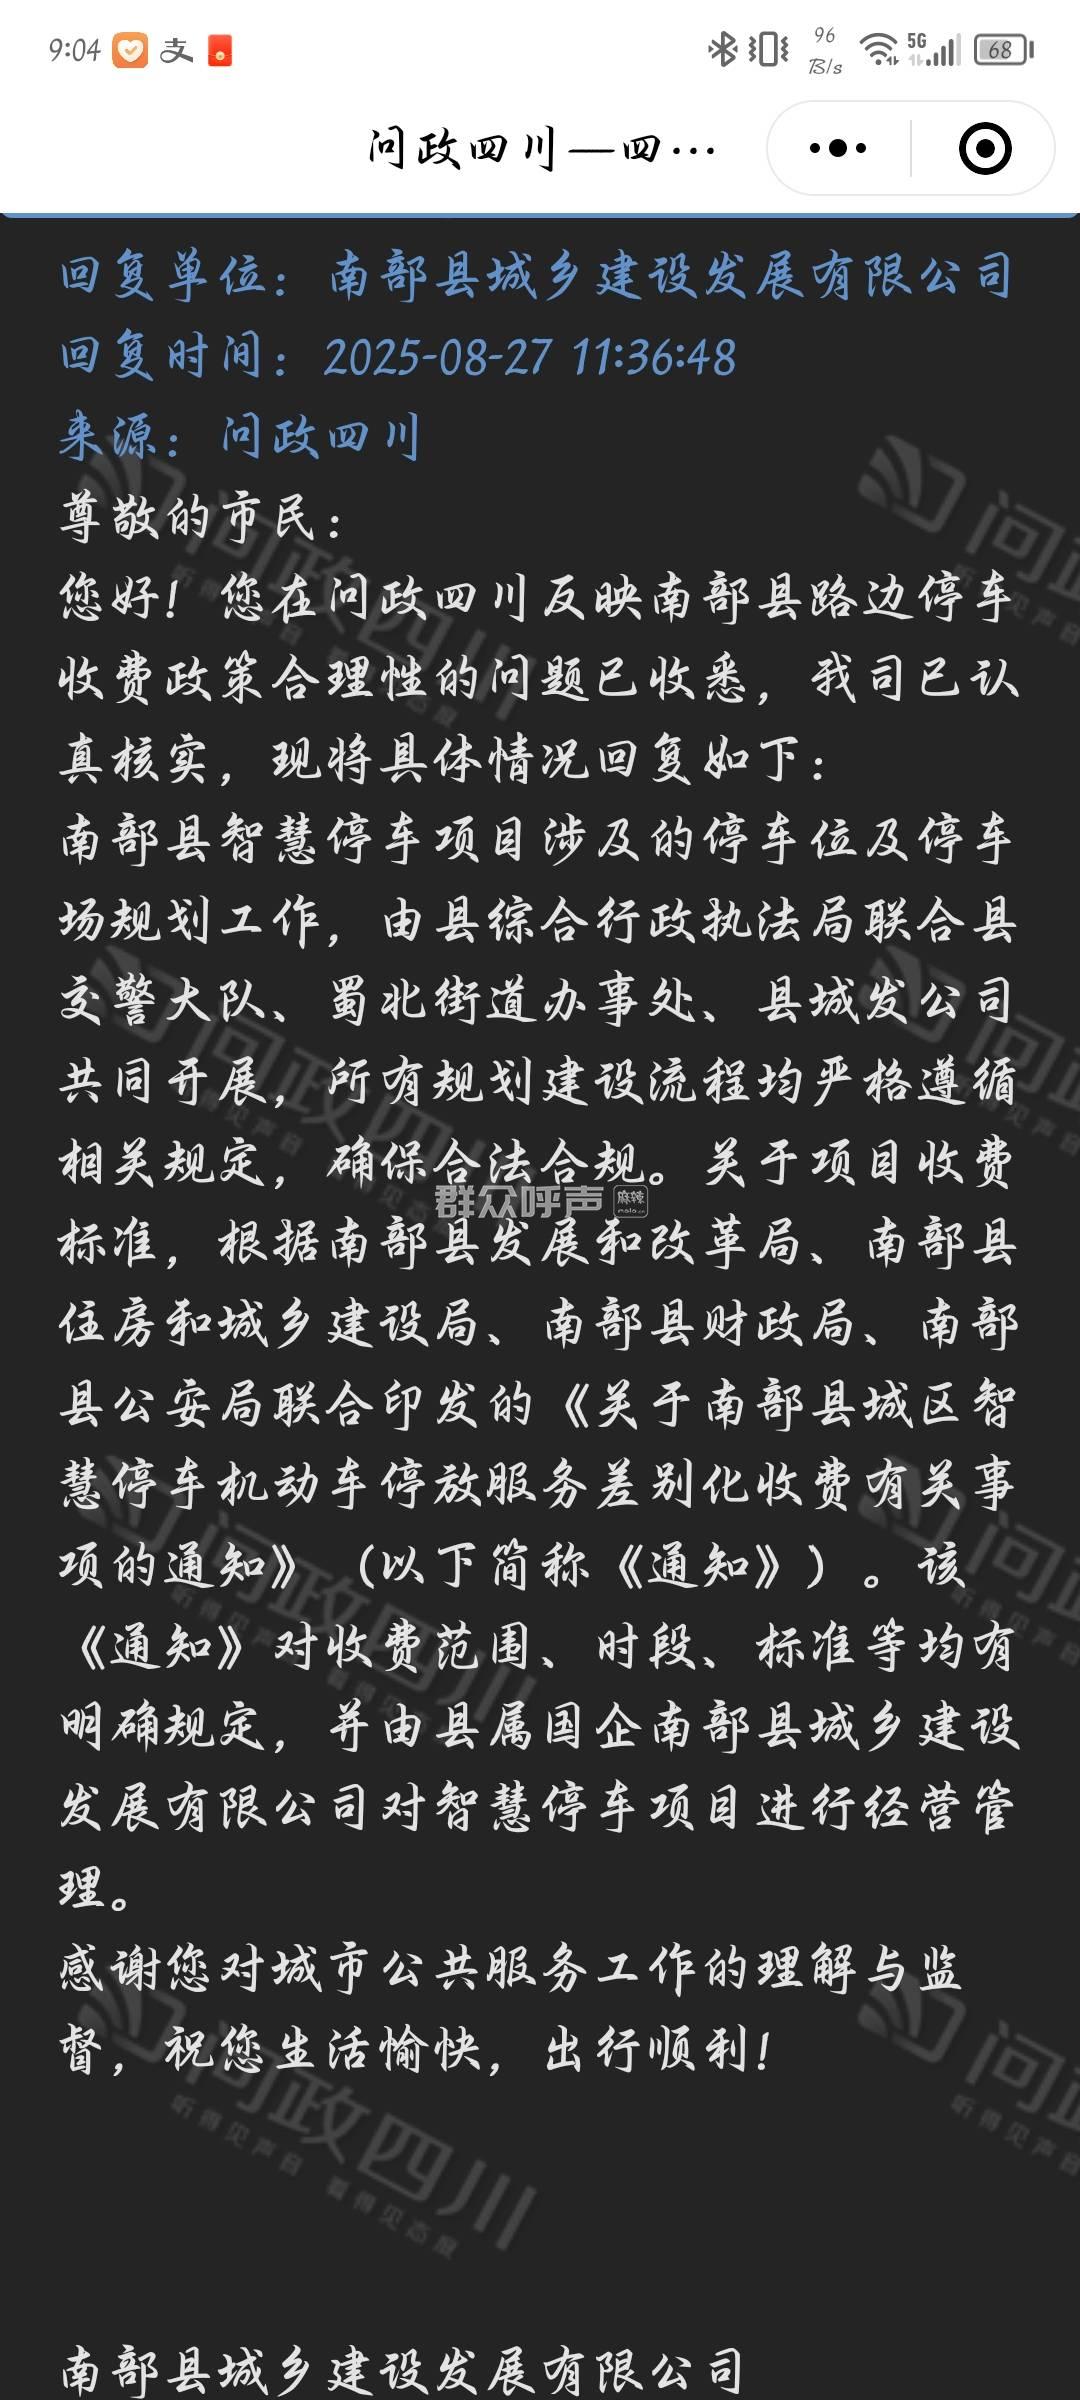 9:04 支 96 B/s 5G 68
问政四川—四…
回复单位：南部县城乡建设发展有限公司
回复时间：2025-08-27 11:36:48
来源：问政四川
尊敬的市民：
您好！您在问政四川反映南部县路边停车
收费政策合理性的问题已收悉，我司已认
真核实，现将具体情况回复如下：
南部县智慧停车项目涉及的停车位及停车
场规划工作，由县综合行政执法局联合县
交警大队、蜀北街道办事处、县城发公司
共同开展，所有规划建设流程均严格遵循
相关规定，确保合法合规。关于项目收费
群众呼声 麻辣 mala.cn
标准，根据南部县发展和改革局、南部县
住房和城乡建设局、南部县财政局、南部
县公安局联合印发的《关于南部县城区智
慧停车机动车停放服务差别化收费有关事
项的通知》（以下简称《通知》）。该
《通知》对收费范围、时段、标准等均有
明确规定，并由县属国企南部县城乡建设
发展有限公司对智慧停车项目进行经营管
理。
感谢您对城市公共服务工作的理解与监
督，祝您生活愉快，出行顺利！
问政四川
听得见声音 看得见态度
南部县城乡建设发展有限公司